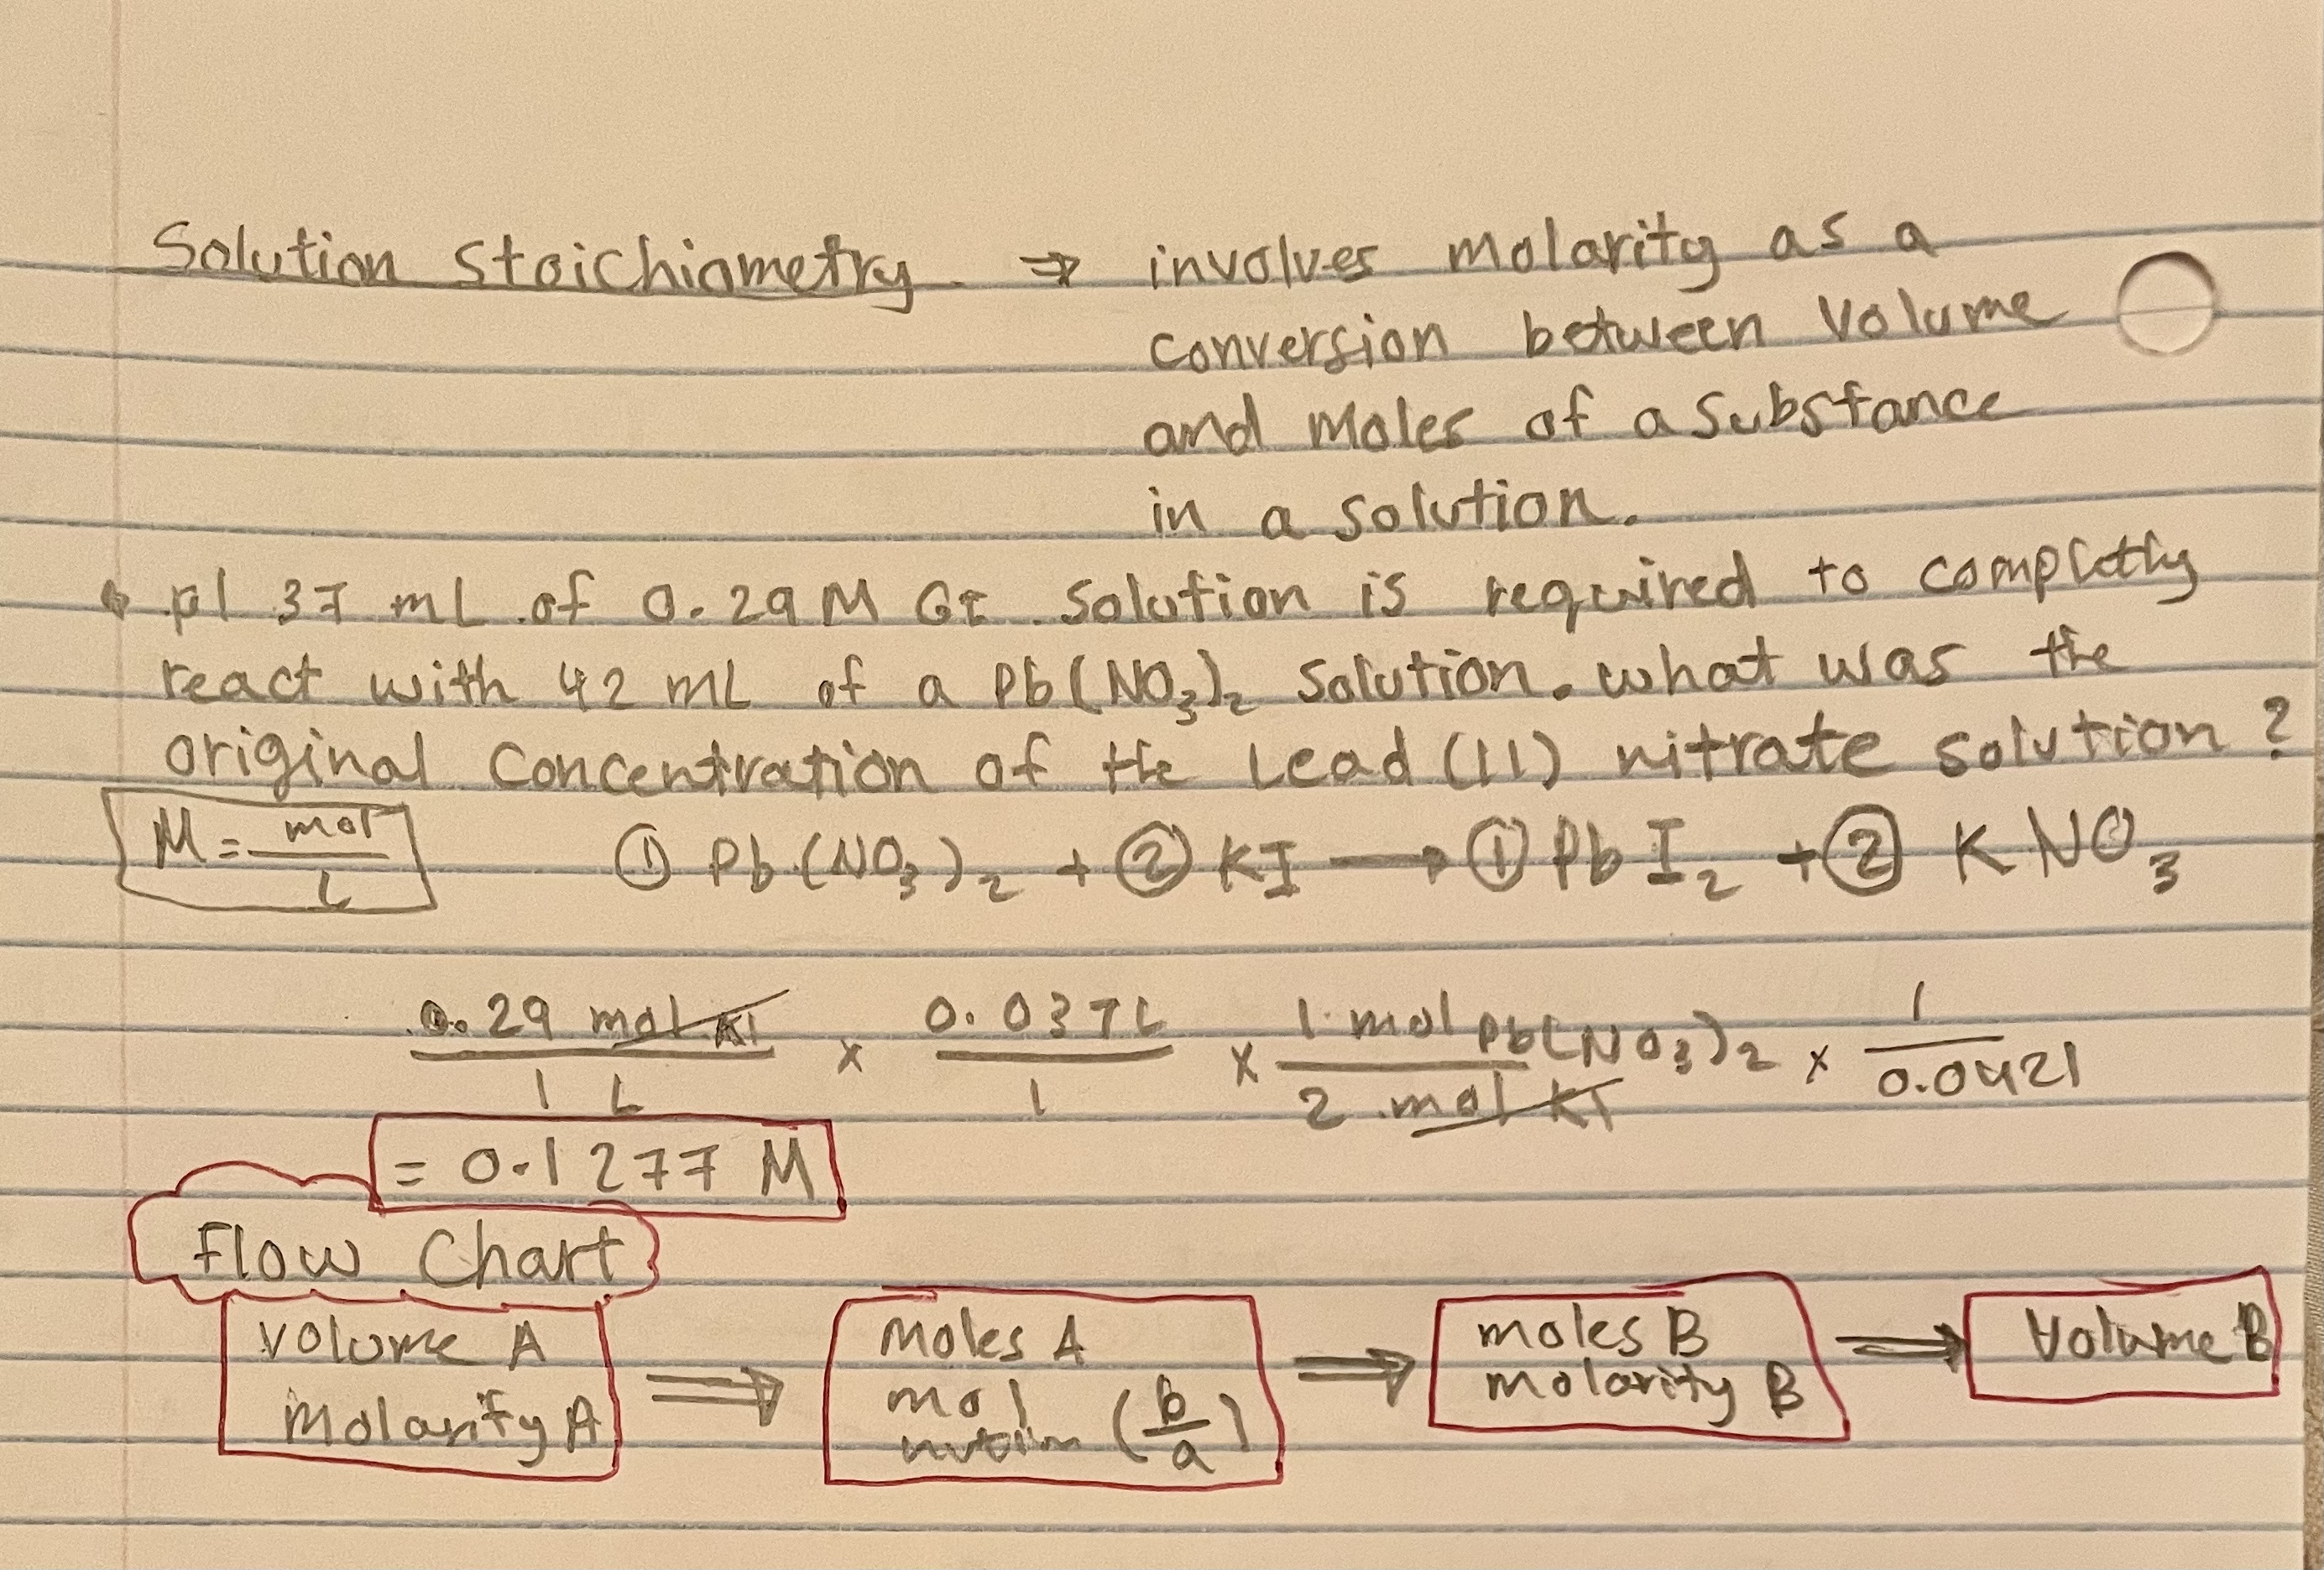 Solution Stoichiometry. ⇒ involves molarity as a
conversion between Volume
and Moles of a Substance
in a solution.
37 mL of 0.29 M solution is required to completly
react with 42 mL of a Pb(NO₃)₂ solution. what was the
original concentration of the Lead (11) nitrate solution?
M = mol/L ① Pb(NO₃)₂ + ② KI → ① PbI₂ + ② KNO₃
0.29 mol KI / 1 L x 0.037L / 1 x 1 mol Pb(NO₃)₂ / 2 mol KI x 1 / 0.042l
= 0.1277 M
Flow Chart
Volume A ⇒ Moles A ⇒ moles B ⇒ Volume B
Molarity A mol (b/a) molarity B